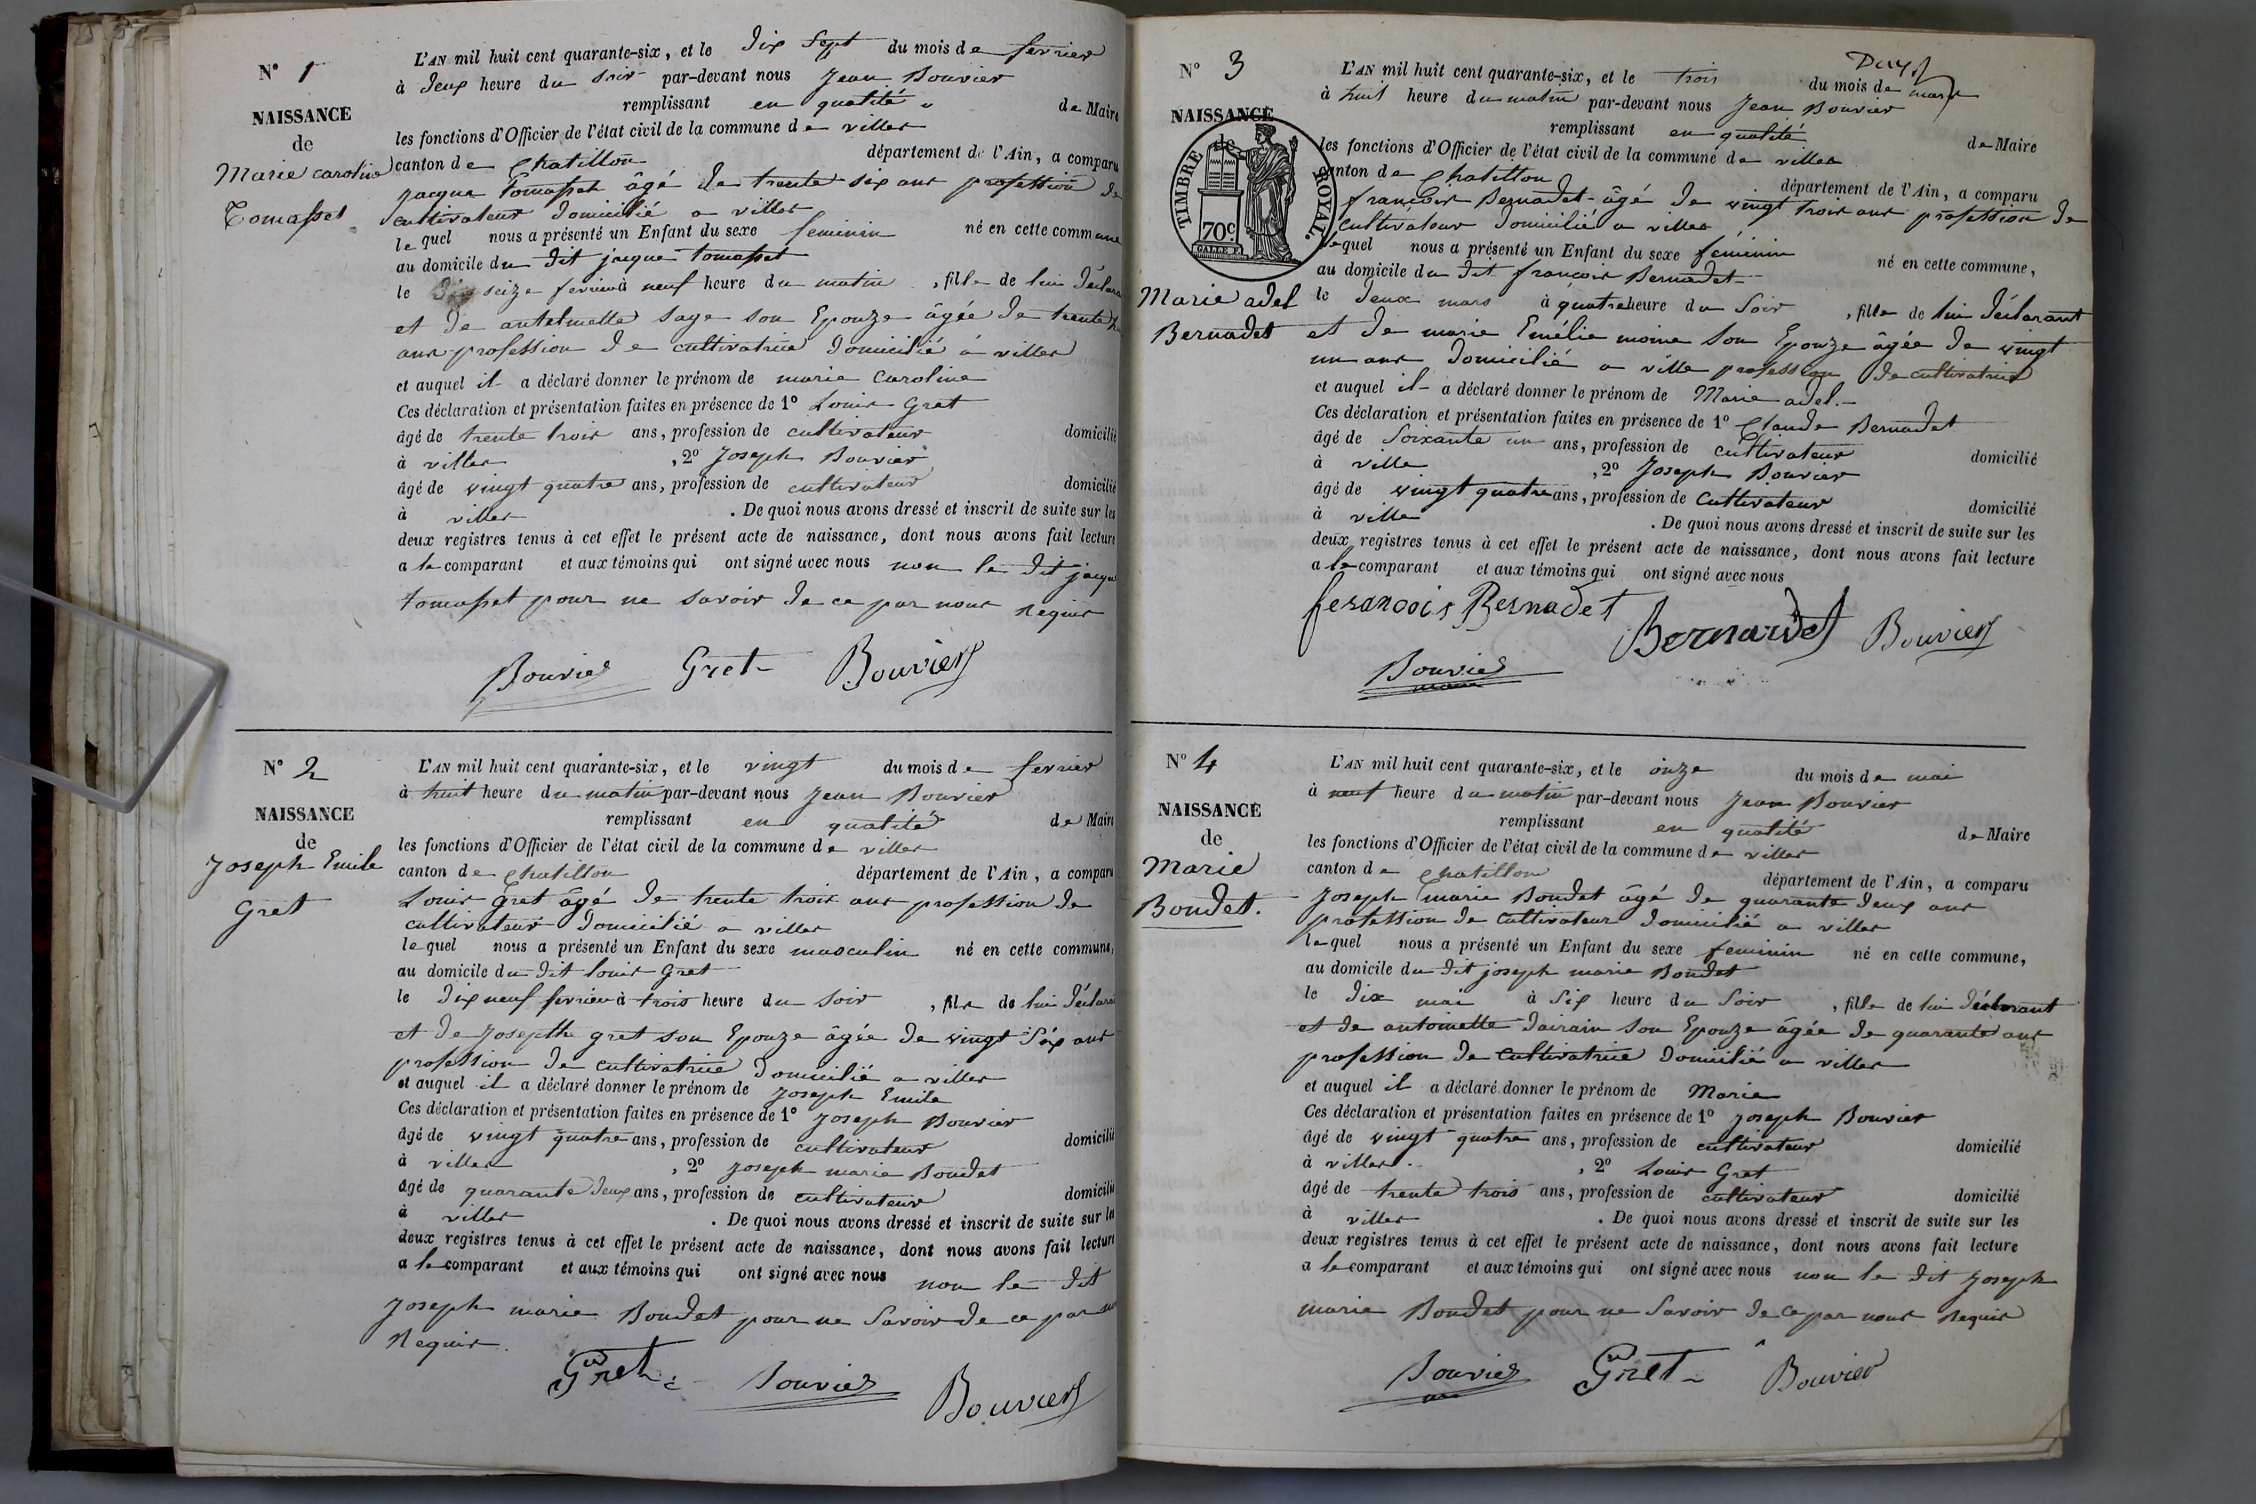 N° 1
NAISSANCE
de
Marie caroline
Tomasset
L'AN mil huit cent quarante-six, et le Dix Sept du mois de fevrier
à Deux heure du soir par-devant nous Jean Bouvier
remplissant en qualité de Maire
les fonctions d'Officier de l'état civil de la commune de villes
canton de Chatillon département de l'Ain, a comparu
jacque tomasset âgé de trente six ans profession de
cultivateur domicilié a villes
lequel nous a présenté un Enfant du sexe feminin né en cette commune
au domicile du dit jacque tomasset
le seize fevrier à neuf heure du matin, fille de lui Déclara
et de antelmette sage son Epouze âgée de trente
ans profession de cultivatrice domicilié a villes
et auquel il a déclaré donner le prénom de marie Caroline
Ces déclaration et présentation faites en présence de 1° Louis Gret
âgé de trente trois ans, profession de cultivateur domicilié
à villes, 2° Joseph Bouvier
âgé de vingt quatre ans, profession de cultivateur domicilié
à villes. De quoi nous avons dressé et inscrit de suite sur les
deux registres tenus à cet effet le présent acte de naissance, dont nous avons fait lecture
a le comparant et aux témoins qui ont signé avec nous non le dit jacque
tomasset pour ne savoir de ce par nous Requis
Bouvier Gret Bouvier
N° 2
NAISSANCE
de
Joseph Emile
Gret
L'AN mil huit cent quarante-six, et le vingt du mois de fevrier
à huit heure du matin par-devant nous Jean Bouvier
remplissant en qualité de Maire
les fonctions d'Officier de l'état civil de la commune de villes
canton de Chatillon département de l'Ain, a comparu
Louis Gret âgé de trente trois ans profession de
cultivateur domicilié a villes
lequel nous a présenté un Enfant du sexe masculin né en cette commune,
au domicile du dit louis Gret
le Dix neuf fevrier à trois heure du soir, fils de lui Déclara
et de Josepth gret son Epouze âgée de vingt Six ans
profession de cultivatrice domicilié a villes
et auquel il a déclaré donner le prénom de Joseph Emile
Ces déclaration et présentation faites en présence de 1° Joseph Bouvier
âgé de vingt quatre ans, profession de cultivateur domicilié
à villes, 2° Joseph marie Boudet
âgé de quarante deux ans, profession de cultivateur domicilié
à villes. De quoi nous avons dressé et inscrit de suite sur les
deux registres tenus à cet effet le présent acte de naissance, dont nous avons fait lecture
a le comparant et aux témoins qui ont signé avec nous non le dit
Joseph marie Boudet pour ne Savoir de ce par nous
Requis.
Gret Bouvier Bouvier
N° 3
NAISSANCE
de
TIMBRE ROYAL.
70c
Marie adel
Bernadet
L'AN mil huit cent quarante-six, et le trois du mois de mars
à huit heure du matin par-devant nous Jean Bouvier
remplissant en qualité de Maire
les fonctions d'Officier de l'état civil de la commune de villes
canton de Chatillon département de l'Ain, a comparu
françois Bernadet âgé de vingt trois ans profession de
cultivateur domicilié a villes
lequel nous a présenté un Enfant du sexe féminin né en cette commune,
au domicile du dit françois Bernadet
le Deux mars à quatre heure du Soir, fille de lui Déclarant
et de marie Emélie moine Son Epouze âgée de vingt
un ans domicilié a ville profession de cultivatrice
et auquel il a déclaré donner le prénom de Marie adel.
Ces déclaration et présentation faites en présence de 1° Claude Bernadet
âgé de Soixante un ans, profession de cultivateur domicilié
à ville, 2° Joseph Bouvier
âgé de vingt quatre ans, profession de cultivateur domicilié
à ville. De quoi nous avons dressé et inscrit de suite sur les
deux registres tenus à cet effet le présent acte de naissance, dont nous avons fait lecture
a le comparant et aux témoins qui ont signé avec nous
ferancois Bernadet
Bernardet Bouvier
Bouvier
maire
N° 4
NAISSANCE
de
Marie
Boudet.
L'AN mil huit cent quarante-six, et le onze du mois de mai
à neuf heure du matin par-devant nous Jean Bouvier
remplissant en qualité de Maire
les fonctions d'Officier de l'état civil de la commune de villes
canton de Chatillon département de l'Ain, a comparu
Joseph marie Boudet âgé de quarante deux ans
profession de cultivateur domicilié a villes
lequel nous a présenté un Enfant du sexe feminin né en cette commune,
au domicile du dit joseph marie Boudet
le Dix mai à Six heure du Soir, fille de lui Déclarant
et de antoinette Dairain son Epouze âgée de quarante ans
profession de cultivatrice domicilié a villes
et auquel il a déclaré donner le prénom de Marie
Ces déclaration et présentation faites en présence de 1° Joseph Bouvier
âgé de vingt quatre ans, profession de cultivateur domicilié
à villes, 2° Louis Gret
âgé de trente trois ans, profession de cultivateur domicilié
à villes. De quoi nous avons dressé et inscrit de suite sur les
deux registres tenus à cet effet le présent acte de naissance, dont nous avons fait lecture
a le comparant et aux témoins qui ont signé avec nous non le dit Joseph
marie Boudet pour ne Savoir de ce par nous Requis
Bouvier Gret Bouvier